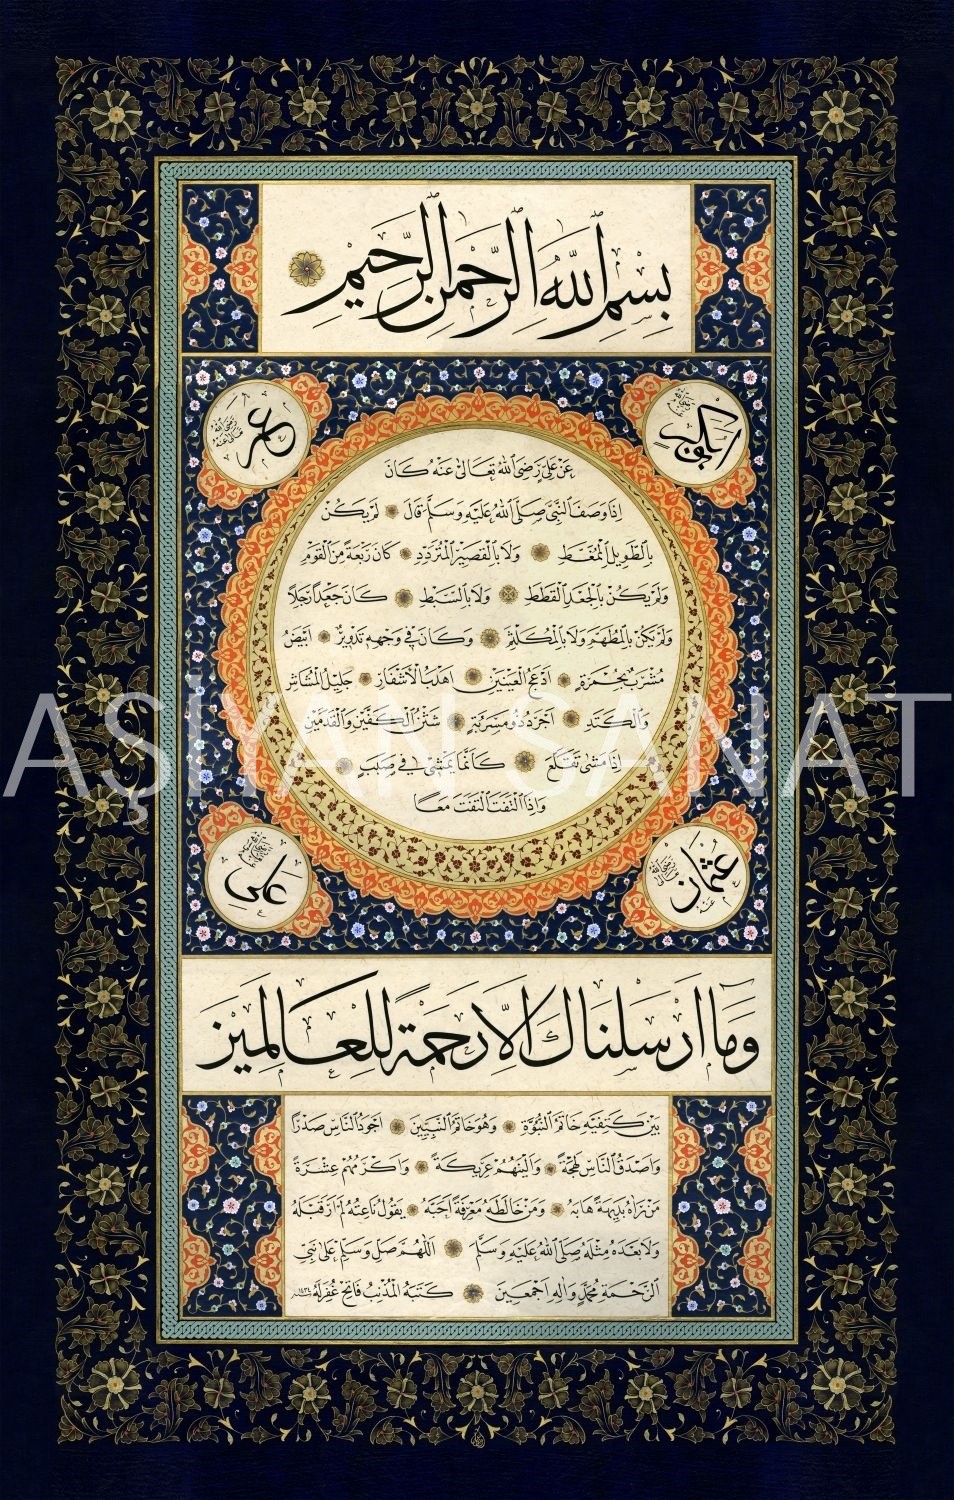 بسم الله الرحمن الرحيم
ابو بكر رضى الله تعالى عنه
عمر رضى الله تعالى عنه
عن علي رضى الله تعالى عنه كان
اذا وصف النبى صلى الله عليه وسلم قال لم يكن
بالطويل الممغط ولا بالقصير المتردد كان ربعة من القوم
ولم يكن بالجعد القطط ولا بالسبط كان جعدا رجلا
ولم يكن بالمطهم ولا بالمكلثم وكان فى وجهه تدوير ابيض
مشرب بحمرة ادعج العينين اهدب الاشفار جليل المشاش
والكتد اجرد ذو مسربة شثن الكفين والقدمين
اذا مشى تقلع كانما يمشى فى صبب
واذا التفت التفت معا
عثمان رضى الله تعالى عنه
على رضى الله تعالى عنه
وما ارسلناك الا رحمة للعالمين
بين كتفيه خاتم النبوة وهو خاتم النبيين اجود الناس صدرا
واصدق الناس لهجة والينهم عريكة واكرمهم عشرة
من راه بديهة هابه ومن خالطه معرفة احبه يقول ناعته لم ار قبله
ولا بعده مثله صلى الله عليه وسلم اللهم صل وسلم على نبى
الرحمة محمد واله اجمعين كتبه المذنب فاتح غفر له
AŞİYAN SANAT